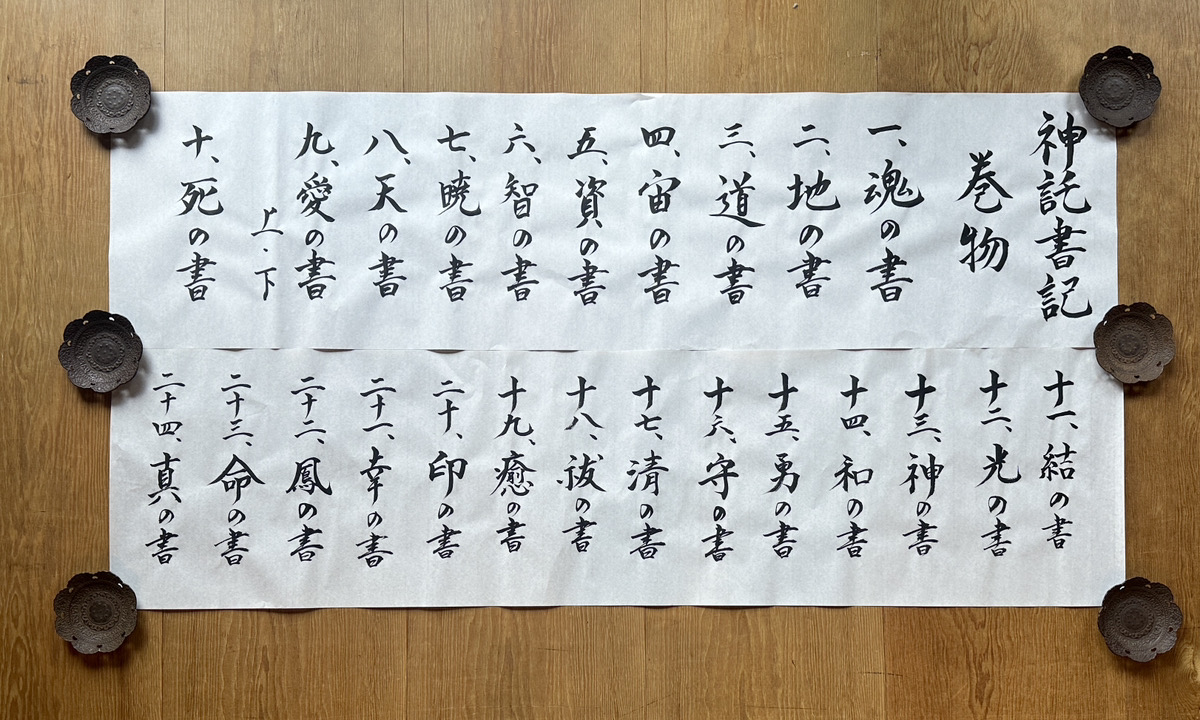 神託書記
巻物
一、魂の書
二、地の書
三、道の書
四、宙の書
五、資の書
六、智の書
七、暁の書
八、天の書
九、愛の書
上・下
十、死の書
十一、結の書
十二、光の書
十三、神の書
十四、和の書
十五、勇の書
十六、守の書
十七、清の書
十八、祓の書
十九、癒の書
二十、印の書
二十一、幸の書
二十二、鳳の書
二十三、命の書
二十四、真の書